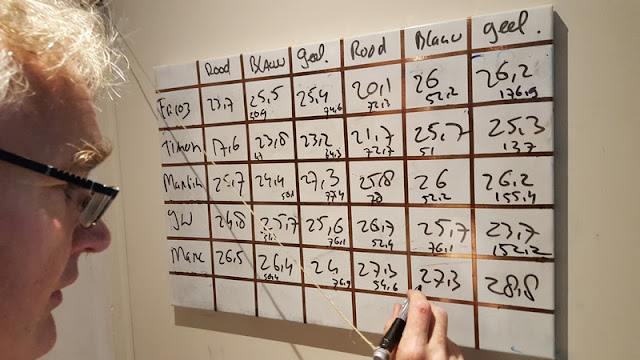 Rood Blauw geel. Rood Blauw geel.
23,7 25,5 25,4 20,1 26 26,2
74,6 72,3 52,2 176,9
Timon 17,6 23,8 23,2 21,7 25,7 25,3
47 72,7 51 137
25,7 24,4 27,3 25,8 26 26,2
50,1 77,4 78 52,2 155,4
JW 24,8 25,7 25,6 26,7 25,7 23,7
76,1 52,4 76,1 152,2
Marc 26,5 26,4 24 27,3 27,3 28,8
76,9 54,6